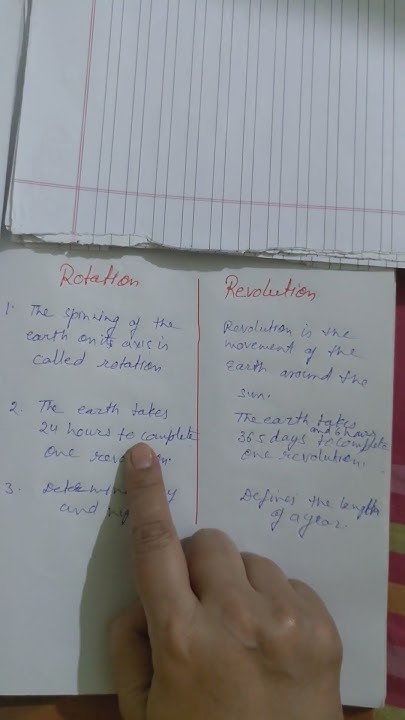 Rotation
1. The spinning of the
earth on its axis is
called rotation
2. The earth takes
24 hours to complete
one
3.
and
Revolution
Revolution is the
movement of the
earth around the
sun.
The earth takes
and 6 hours
365 days to complete
one revolution.
Defines the length
of a year.